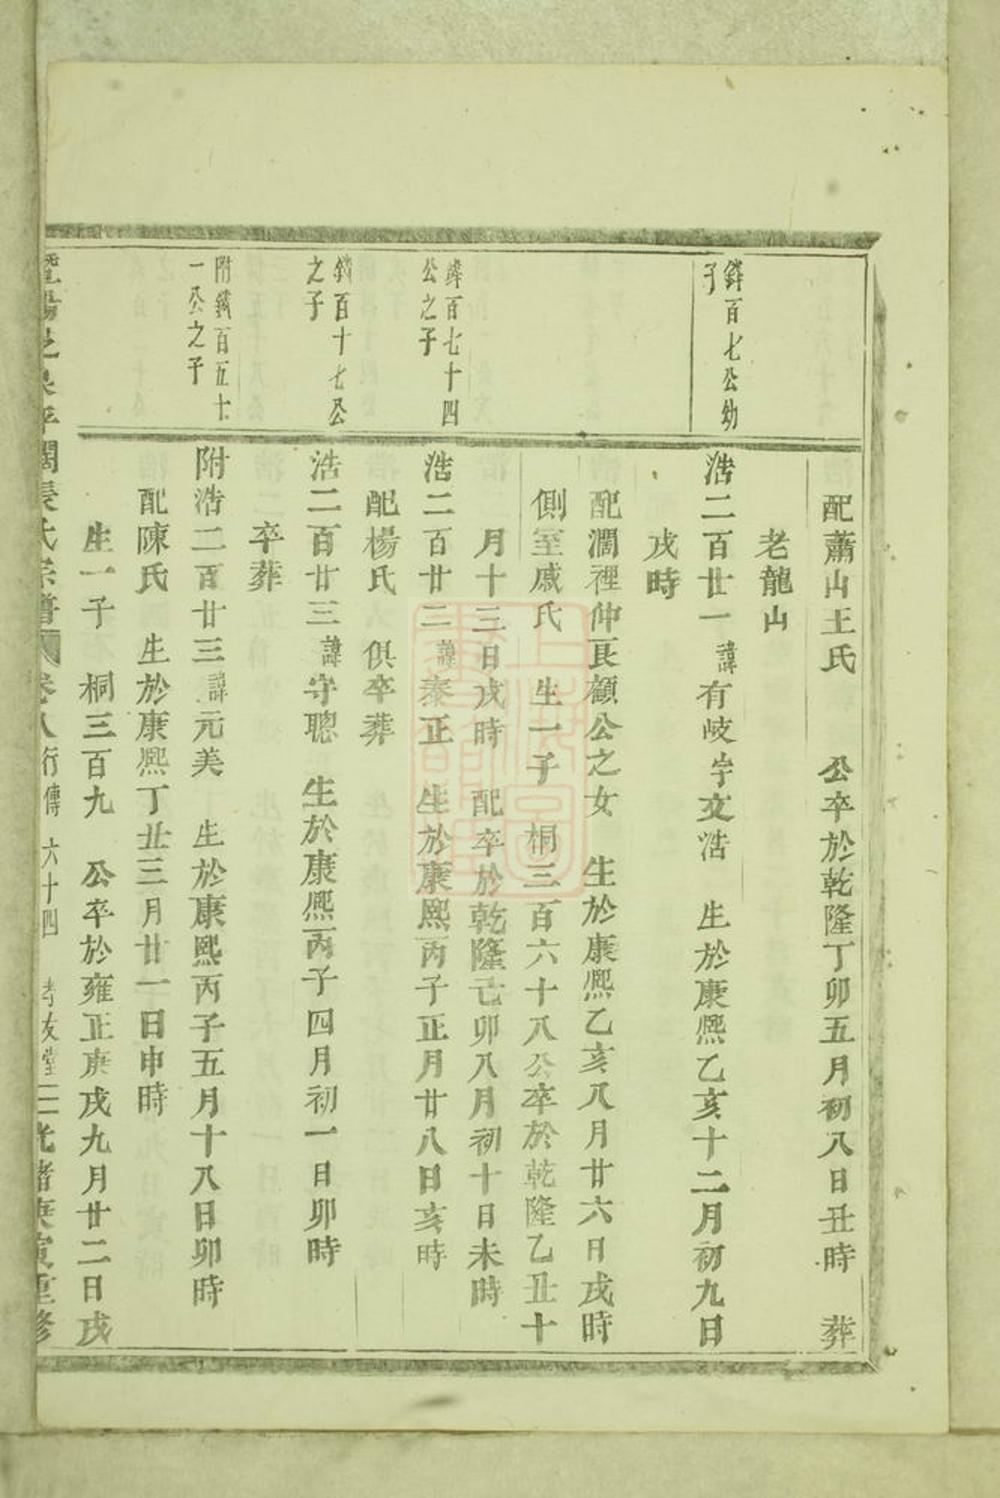 配蕭山王氏　公卒於乾隆丁卯五月初八日丑時　葬
老龍山
鏻百七公幼
子
浩二百廿一諱有岐字文浩　生於康熙乙亥十二月初九日
戌時
配濶裡仲良顧公之女　生於康熙乙亥八月廿六日戌時
側室戚氏　生一子　桐三百六十八公卒於乾隆乙丑十
月十三日戌時　配卒於乾隆己卯八月初十日未時
百七十四
公之子
浩二百廿二諱泰正　生於康熙丙子正月廿八日亥時
配楊氏　俱卒葬
百十七公
之子
浩二百廿三諱守聰　生於康熙丙子四月初一日卯時
卒葬
附鏻百五十
一公之子
附浩二百廿三諱元美　生於康熙丙子五月十八日卯時
配陳氏　生於康熙丁丑三月廿一日申時
生一子　桐三百九　公卒於雍正庚戌九月廿二日戌
氏宗譜　卷八行傳　六十四　孝友堂　光緒庚寅重修